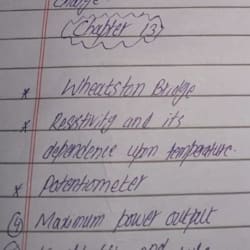 change
(Chapter 13)
* Wheatston Bridge
* Resistivity and its
dependence upon temperature.
* Potentiometer
(4) Maximum power output